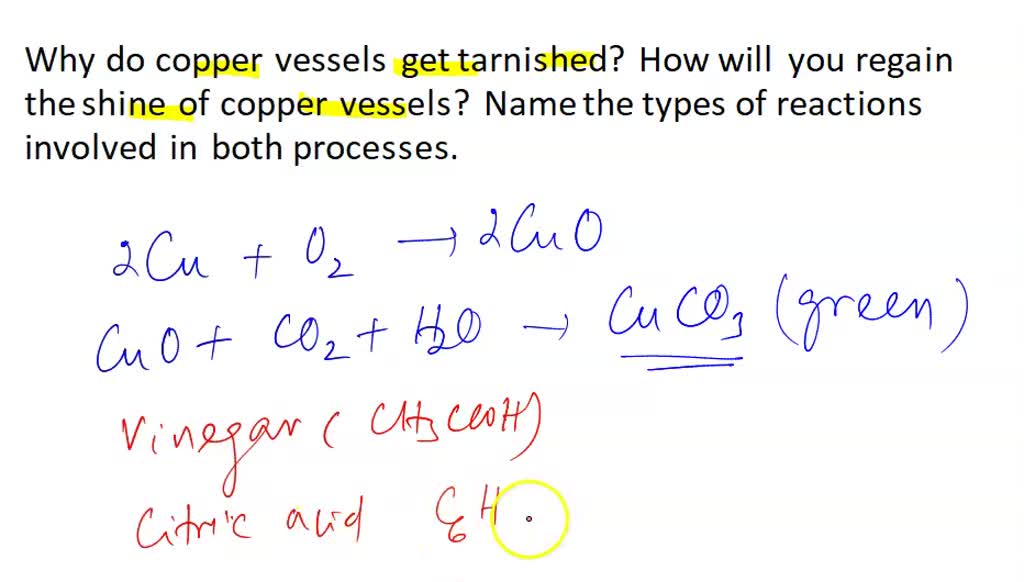 Why do copper vessels get tarnished? How will you regain
the shine of copper vessels? Name the types of reactions
involved in both processes.
2Cu + O₂ → 2CuO
CuO + CO₂ + H₂O → CuCO₃ (green)
Vinegar (CH₃COOH)
Citric acid C₆H